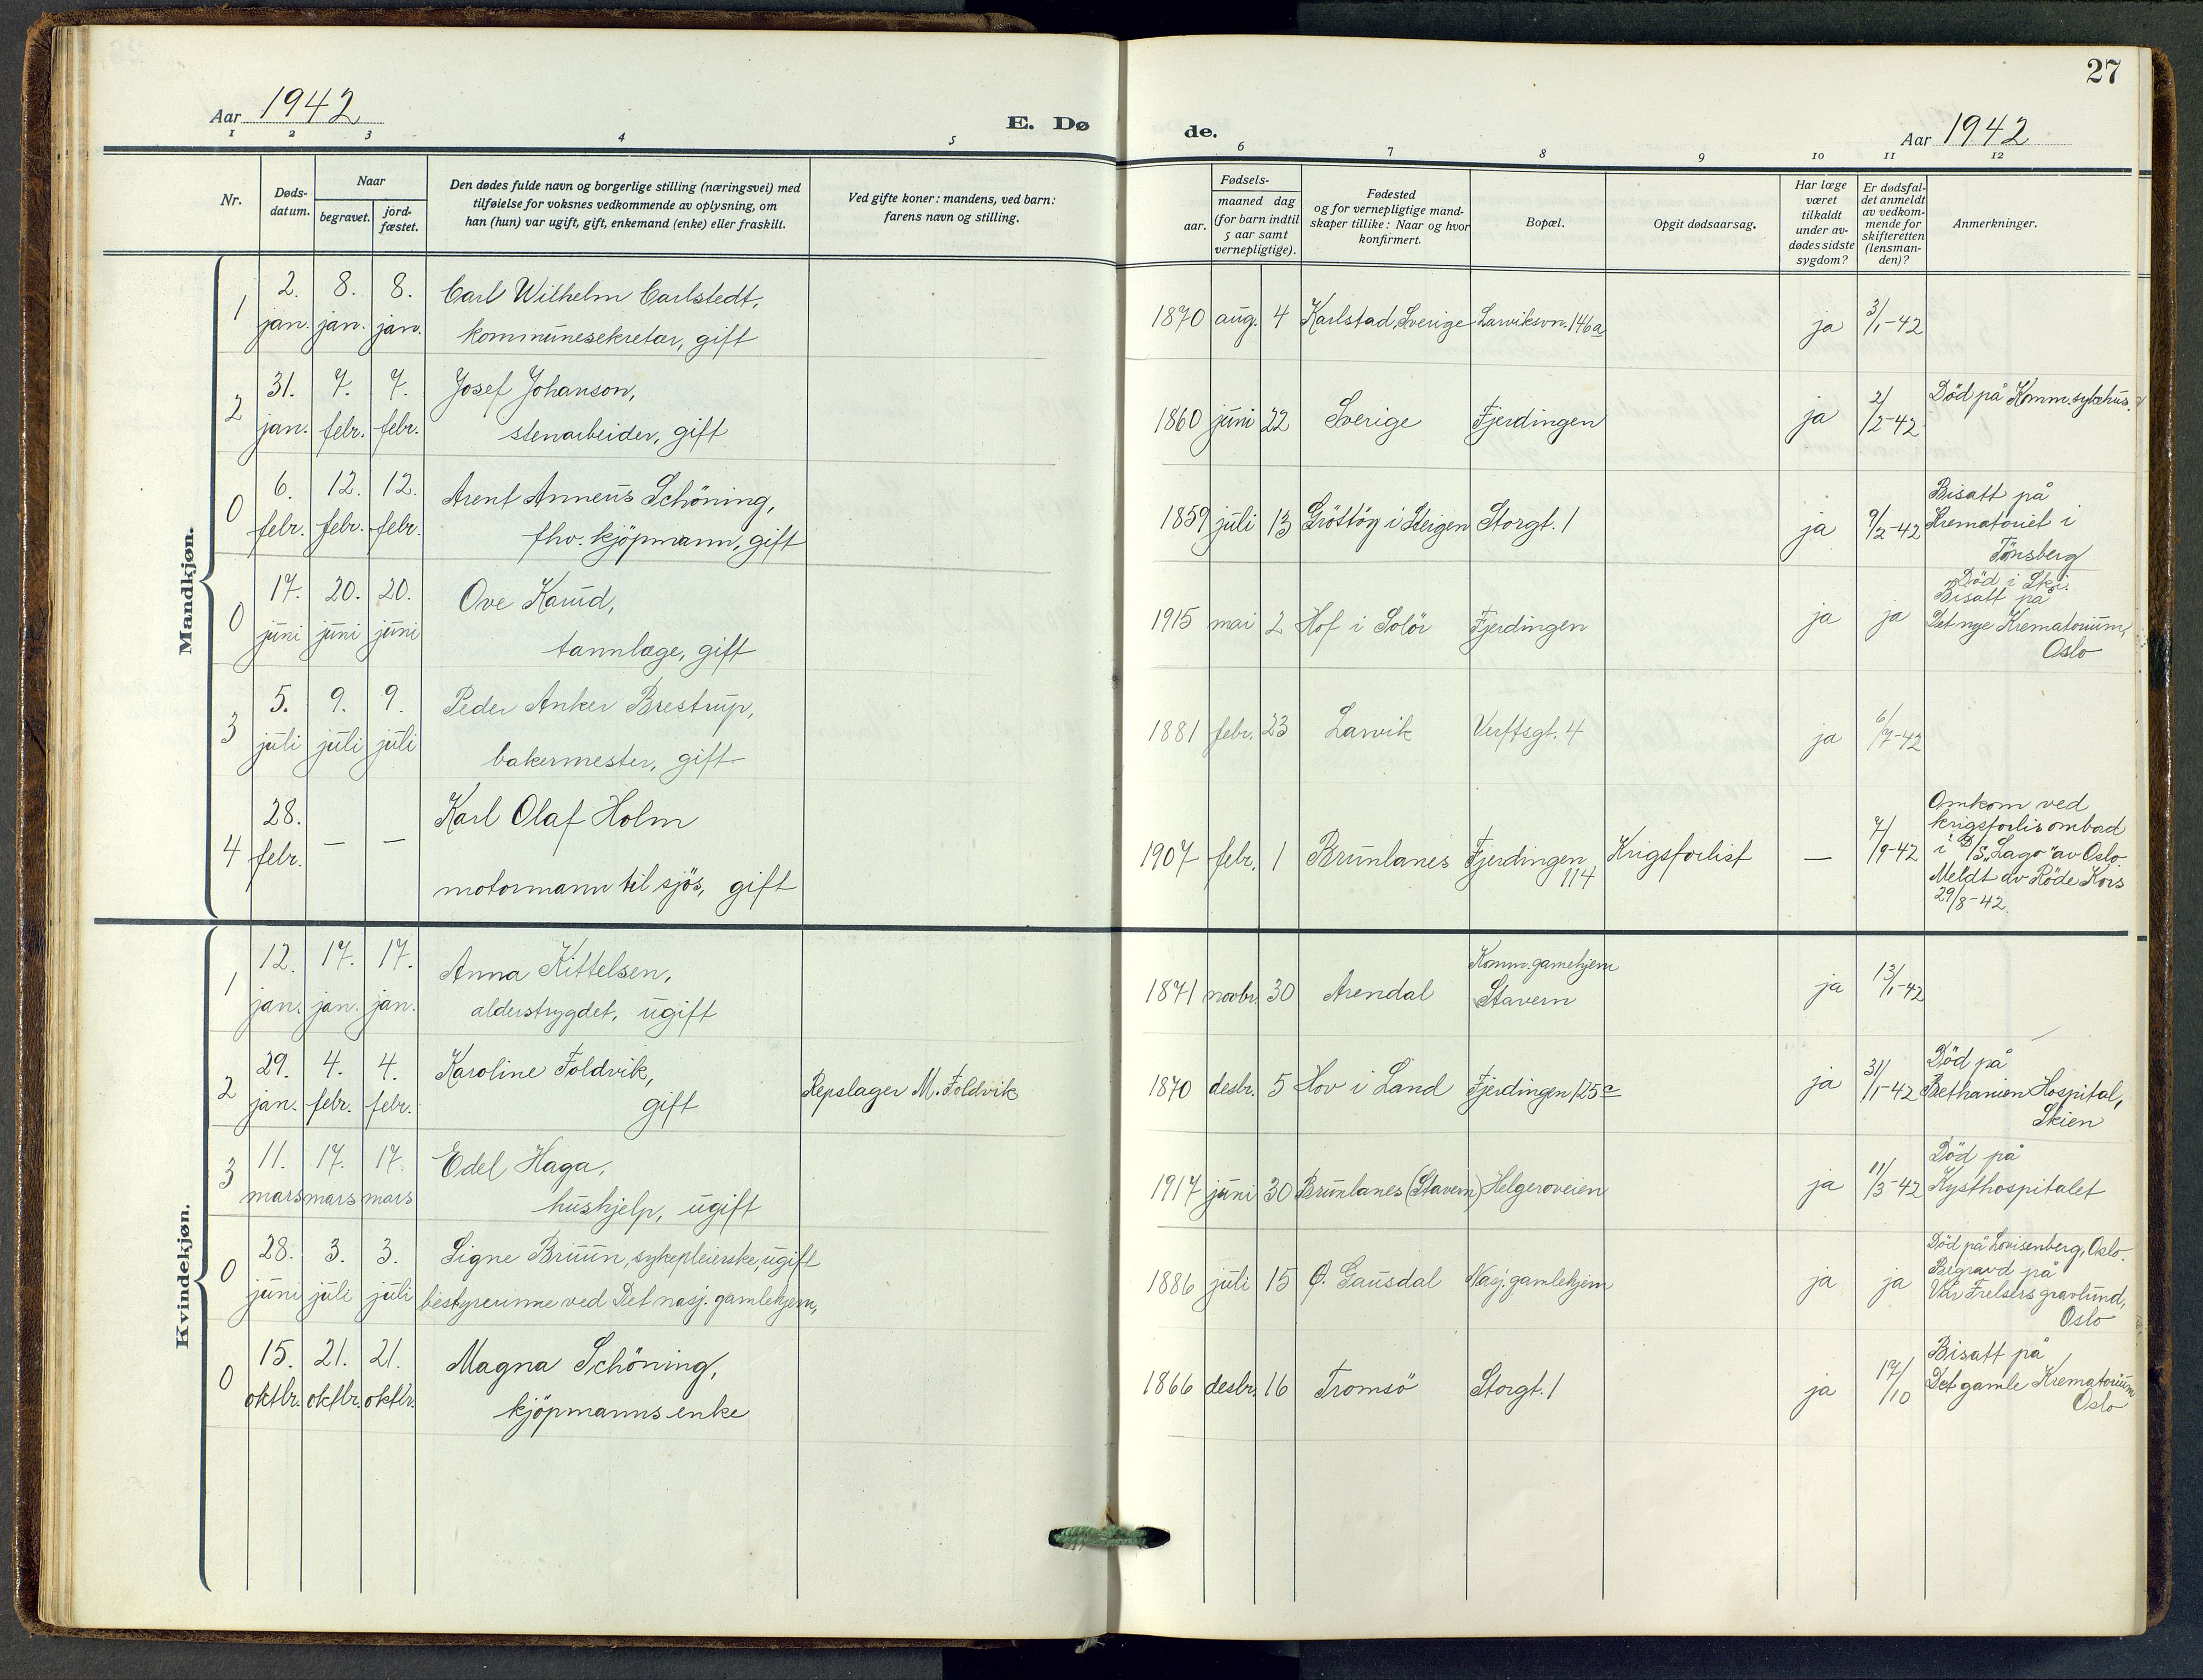 27
Aar 1942
E. Dø de.
Aar 1942
1 2 3 4 5 6 7 8 9 10 11 12
Nr.
Døds-
datum.
Naar
begravet.
jord-
fæstet.
Den dødes fulde navn og borgerlige stilling (næringsvei) med
tilføielse for voksnes vedkommende av oplysning, om
han (hun) var ugift, gift, enkemand (enke) eller fraskilt.
Ved gifte koner: mandens, ved barn:
farens navn og stilling.
Fødsels-
aar.
maaned dag
(for barn indtil
5 aar samt
vernepligtige).
Fødested
og for vernepligtige mand-
skaper tillike: Naar og hvor
konfirmert.
Bopæl.
Opgit dødsaarsag.
Har læge
været
tilkaldt
under av-
dødes sidste
sygdom?
Er dødsfal-
det anmeldt
av vedkom-
mende for
skifteretten
(lensman-
den)?
Anmerkninger.
Mandkjøn.
1 2. jan. 8. jan. 8. jan. Carl Wilhelm Carlstedt,
kommunesekretær, gift
1870 aug. 4 Karlstad, Sverige Larviksvn. 146a ja 3/1-42
2 31. jan. 7. febr. 7. febr. Josef Johanson,
stenarbeider, gift
1860 juni 22 Sverige Fjerdingen ja 2/2-42 Död på Komm. sykehus.
0 6. febr. 12. febr. 12. febr. Arent Anneus Schöning,
fhv. kjöpmann, gift
1859 juli 13 Gröttöy i Steigen Storgt. 1 ja 9/2-42 Bisatt på
Krematoriet i
Tönsberg
0 17. juni 20. juni 20. juni Ove Karud,
tannlæge, gift
1915 mai 2 Hof i Solör Fjerdingen ja ja Död i Ski.
Bisatt på
Det nye Krematorium,
Oslo
3 5. juli 9. juli 9. juli Peder Anker Brestrup,
bakermester, gift
1881 febr. 23 Larvik Verftsgt. 4 ja 6/7-42
4 28. febr. — — Karl Olaf Holm
motormann til sjös, gift
1907 febr. 1 Brunlanes Fjerdingen 114 Krigsforlist — 7/9-42 Omkom ved
krigsforlis ombord
i D/S „Lago" av Oslo
Meldt av Röde Kors
29/8-42
Kvindekjøn.
1 12. jan. 17. jan. 17. jan. Anna Kittelsen,
alderstrygdet, ugift
1871 novbr. 30 Arendal Komm. gamlehjem
Stavern ja 13/1-42
2 29. jan. 4. febr. 4. febr. Karoline Foldvik,
gift
Repslager M. Foldvik
1870 desbr. 5 Hov i Land Fjerdingen 125c ja 31/1-42 Död på
Bethanien Hospital,
Skien
3 11. mars 17. mars 17. mars Edel Haga,
hushjelp, ugift
1917 juni 30 Brunlanes (Stavern) Helgeroveien ja 11/3-42 Död på
Kysthospitalet
0 28. juni 3. juli 3. juli Signe Bruun, sykepleierske, ugift
bestyrerinne ved Det nasj. gamlehjem,
1886 juli 15 Ö. Gausdal Nasj. gamlehjem ja ja Död på Lovisenberg, Oslo
Begravd på
Vår Frelsers gravlund,
Oslo
0 15. oktbr. 21. oktbr. 21. oktbr. Magna Schöning,
kjöpmanns enke
1866 desbr. 16 Tromsö Storgt. 1 ja 17/10 Bisatt på
Det gamle Krematorium
Oslo